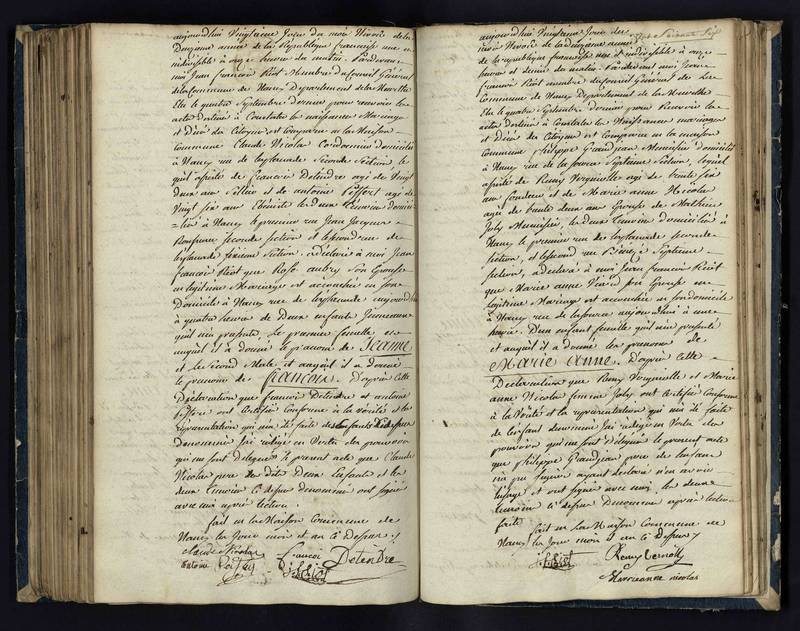 aujourdhui Vingtieme Jour du mois Nivose de la
Deuxieme année de la République française une et
indivisible à onze heures du matin. Pardevant
moi Jean francois Membre du Conseil Général
de la Commune de Nancy Département de la Meurthe
Elu le quatre Septembre dernier pour recevoir les
actes destinés à Constater les naissances Mariages
et Décès des Citoyens est comparu en la Maison
Commune Claude Nicolas Cordonnier domicilié
à Nancy rue de l'esplanade Seconde Section le
quel assisté de francois Detendre agé de Vingt
Deux ans Sellier et de antoine agé de
Vingt six ans les deux témoins domici-
-liés à Nancy le premier rue Jean Jacques
Rousseau seconde section et le second rue de
l'esplanade Section. a déclaré à moi Jean
francois que Rose aubry son Epouse
en légitime Mariage est accouchée en son
Domicile à Nancy rue de l'esplanade aujourdhui
à quatre heures de Deux enfants Jumeaux
quil m'a présenté. Le premier femelle et
auquel il a donné le prénom de Jeanne
et le Second Male et auquel il a donné
le prenom de francois. D'après cette
Déclaration que francois Detendre et antoine
ont Certifiée Conforme à la Vérité et la
Représentation qui m'a été faite des Enfants
Denommés J'ai rédigé en Vertu des pouvoirs
qui me sont délégués le présent acte que Claude
Nicolas pere des dits Deux Enfants et les
deux témoins ci dessus denommés ont signé
avec moi après lecture.
fait en la Maison Commune de
Nancy les Jour mois et an ci Dessus
claude Nicolas
francois Detendre
antoine
aujourdhui Vingtieme Jour du
mois Nivose de la deuxieme année
de la république française une et indivisible à onze
heures et demie du matin. Pardevant moi Jean
francois membre du Conseil Général de la
Commune de Nancy Département de la Meurthe
Elu le quatre Septembre dernier pour Recevoir les
actes destinés à Constater les Naissances mariages
et Décès des Citoyens est comparu en la maison
Commune philippe Grandjean Menuisier Domicilié
à Nancy rue de la source Septieme Section, lequel
assisté de Remy agé de trente six
ans fondeur et de Marie anne Nicolas
agée de trente deux ans Epouse de Mathieu
Joly Menuisier les deux témoins domiciliés à
Nancy le premier rue de l'esplanade seconde
section, et le second rue Septieme
section, a déclaré à moi Jean francois
que Marie anne son Epouse en
légitime Mariage est accouchée en son domicile
à Nancy rue de la source aujourdhui à une
heure. D'un enfant femelle quil m'a présenté
et auquel il a donné les prénoms de
Marie Anne. D'après cette
Déclaration que Remy et Marie
anne Nicolas femme Joly ont certifiée Conforme
à la Vérité et la représentation qui m'a été faite
de l'enfant denommé J'ai rédigé en Vertu des
pouvoirs qui me sont délégués le présent acte
que philippe Grandjean pere de l'enfant
n'a pu signer ayant déclaré n'en avoir
l'usage et ont signé avec moi les deux
temoins ci dessus Denommés après lecture
faite
fait en la Maison Commune de
Nancy les Jour mois et an ci Dessus
Remy
Marieanne nicolas